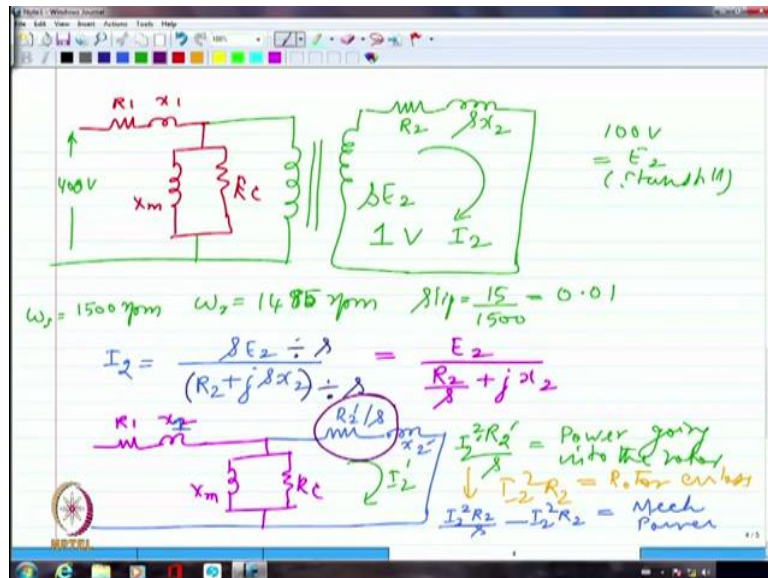 Note1 - Windows Journal
File Edit View Insert Actions Tools Help
100%
R1 x1
400V
Xm
Rc
R2
sx2
sE2
1V I2
100V
= E2
(Standstill)
ωs = 1500 rpm ωr = 1485 rpm slip = 15/1500 = 0.01
I2 = sE2 ÷ s / (R2 + j sx2) ÷ s = E2 / (R2/s + j x2)
R1
Xm
Rc
R2'/s
x2'
I2'
I2'² R2'/s = Power going into the rotor
↓ I2² R2 = Rotor cu loss
I2² R2/s - I2² R2 = Mech Power
NPTEL
4/5